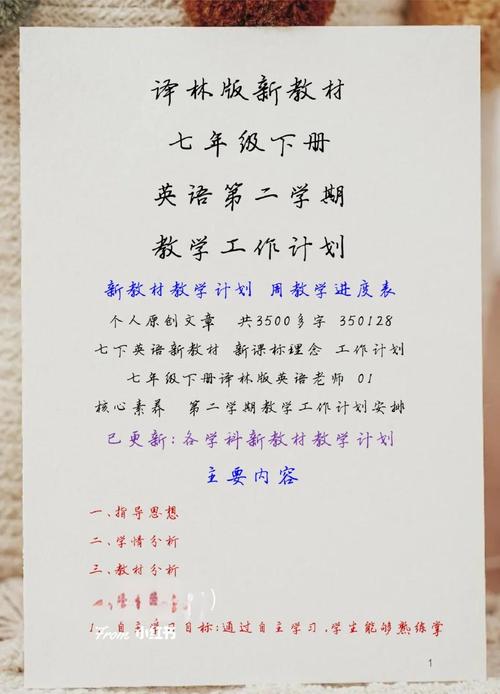 译林版新教材
七年级下册
英语第二学期
教学工作计划
新教材教学计划 周教学进度表
个人原创文章 共3500多字 350128
七下英语新教材 新课标理念 工作计划
七年级下册译林版英语老师 01
核心素养 第二学期教学工作计划安排
已更新:各学科新教材教学计划
主要内容
一、指导思想
二、学情分析
三、教材分析
1、自主学习目标:通过自主学习,学生能够熟练掌
From 小红书
1